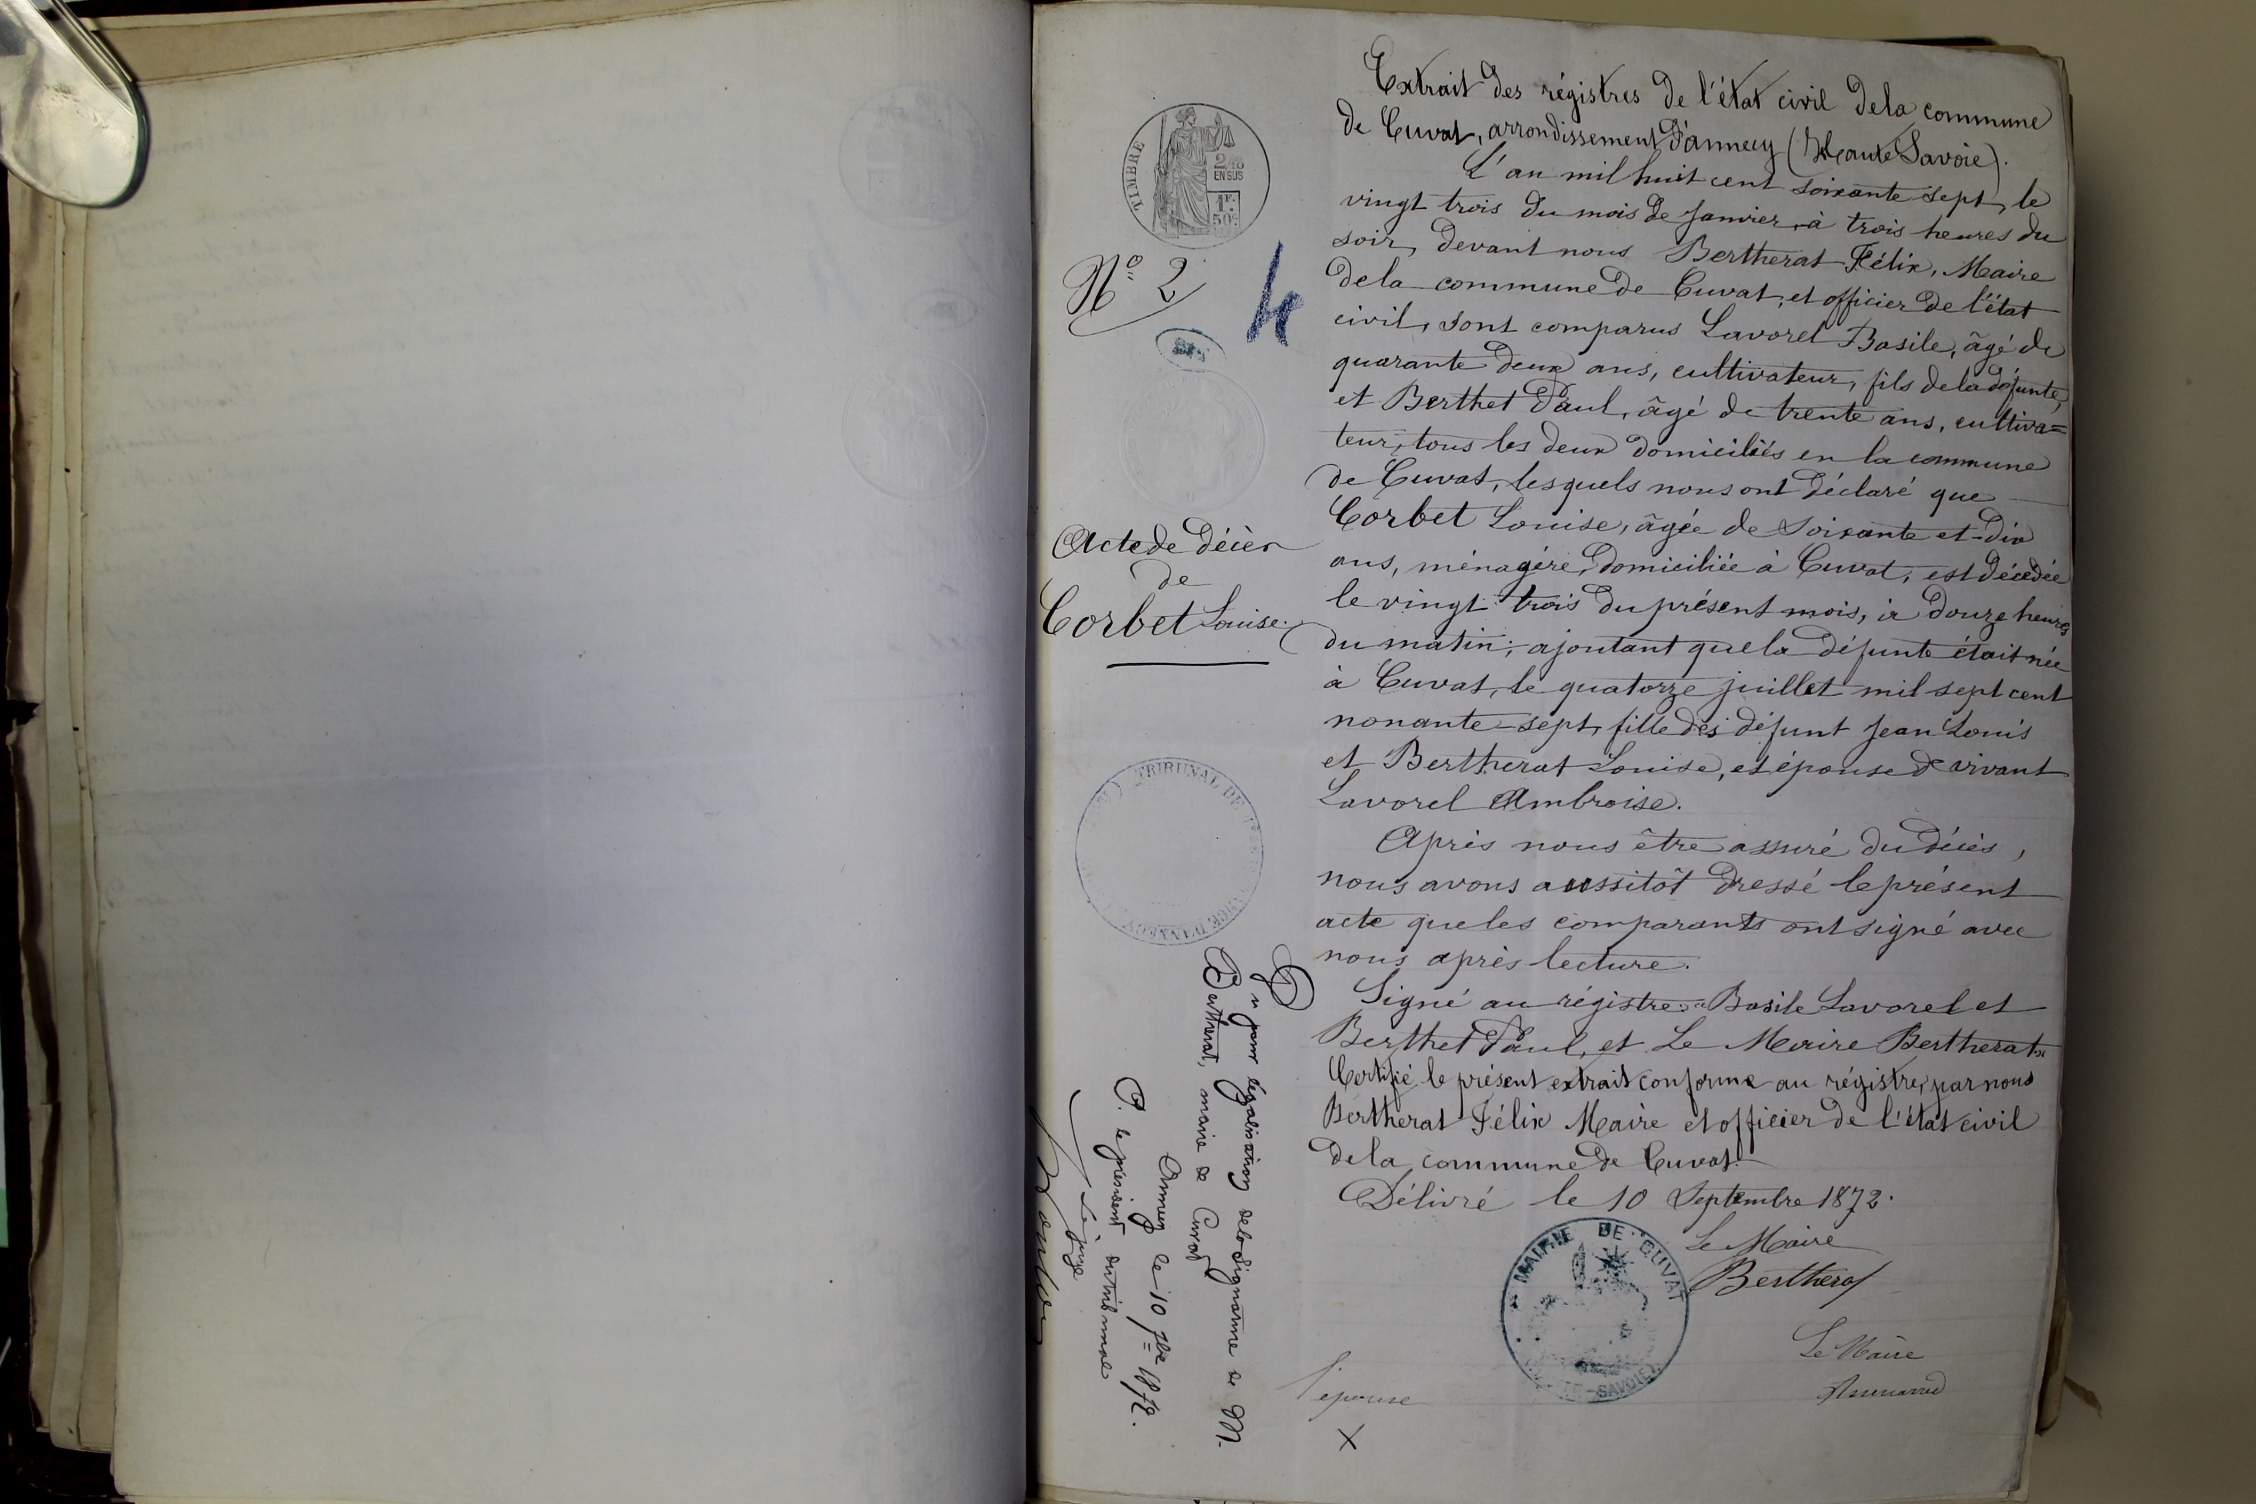 Extrait des régistres de l'état civil de la commune
de Cuvat, arrondissement d'annecy (Haute Savoie).
L'an mil huit cent soixante sept, le
vingt trois du mois de Janvier, à trois heures du
soir, devant nous Bertherat Félix, Maire
de la commune de Cuvat, et officier de l'état
civil, sont comparus Lavorel Basile, âgé de
quarante deux ans, cultivateur, fils de la défunte,
et Berthet Paul, âgé de trente ans, cultiva=
teur, tous les deux domiciliés en la commune
de Cuvat, lesquels nous ont déclaré que
Corbet Louise, âgée de soixante et-dix
ans, ménagère, domiciliée à Cuvat, est décédée
le vingt trois du présent mois, à douze heures
du matin; ajoutant que la défunte était née
à Cuvat, le quatorze juillet mil sept cent
nonante-sept, fille des défunt Jean Louis
et Bertherat Louise, et épouse de vivant
Lavorel Ambroise.
Après nous être assuré du décès,
nous avons aussitôt dressé le présent
acte que les comparants ont signé avec
nous après lecture.
Signé au régistre: "Basile Lavorel et
Berthet Paul, et Le Maire Bertherat"
Certifié le présent extrait conforme au régistre, par nous
Bertherat Félix Maire et officier de l'état civil
de la commune de Cuvat.
Délivré le 10 Septembre 1872.
Le Maire
Bertherat
MAIRIE DE CUVAT
SAVOIE
Le Maire
l'épouse
X
TIMBRE
2/10
EN SUS
1F.
50c.
No 2
Acte de décès
de
Corbet Louise.
TRIBUNAL DE
D'ANNECY
Vu pour légalisation de la Signature de M.
Bertherat, maire de Cuvat
Annecy le 10 7bre 1872.
P. le président du tribunal
Le juge